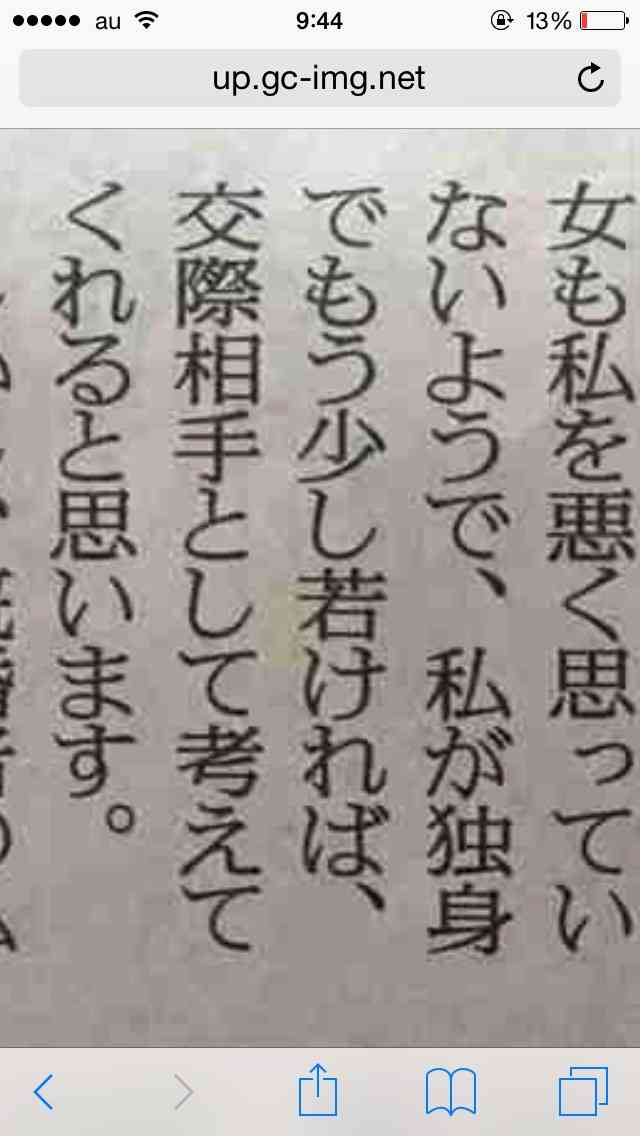 au
9:44
13%
up.gc-img.net
女も私を悪く思ってい
ないようで、私が独身
でもう少し若ければ、
交際相手として考えて
くれると思います。